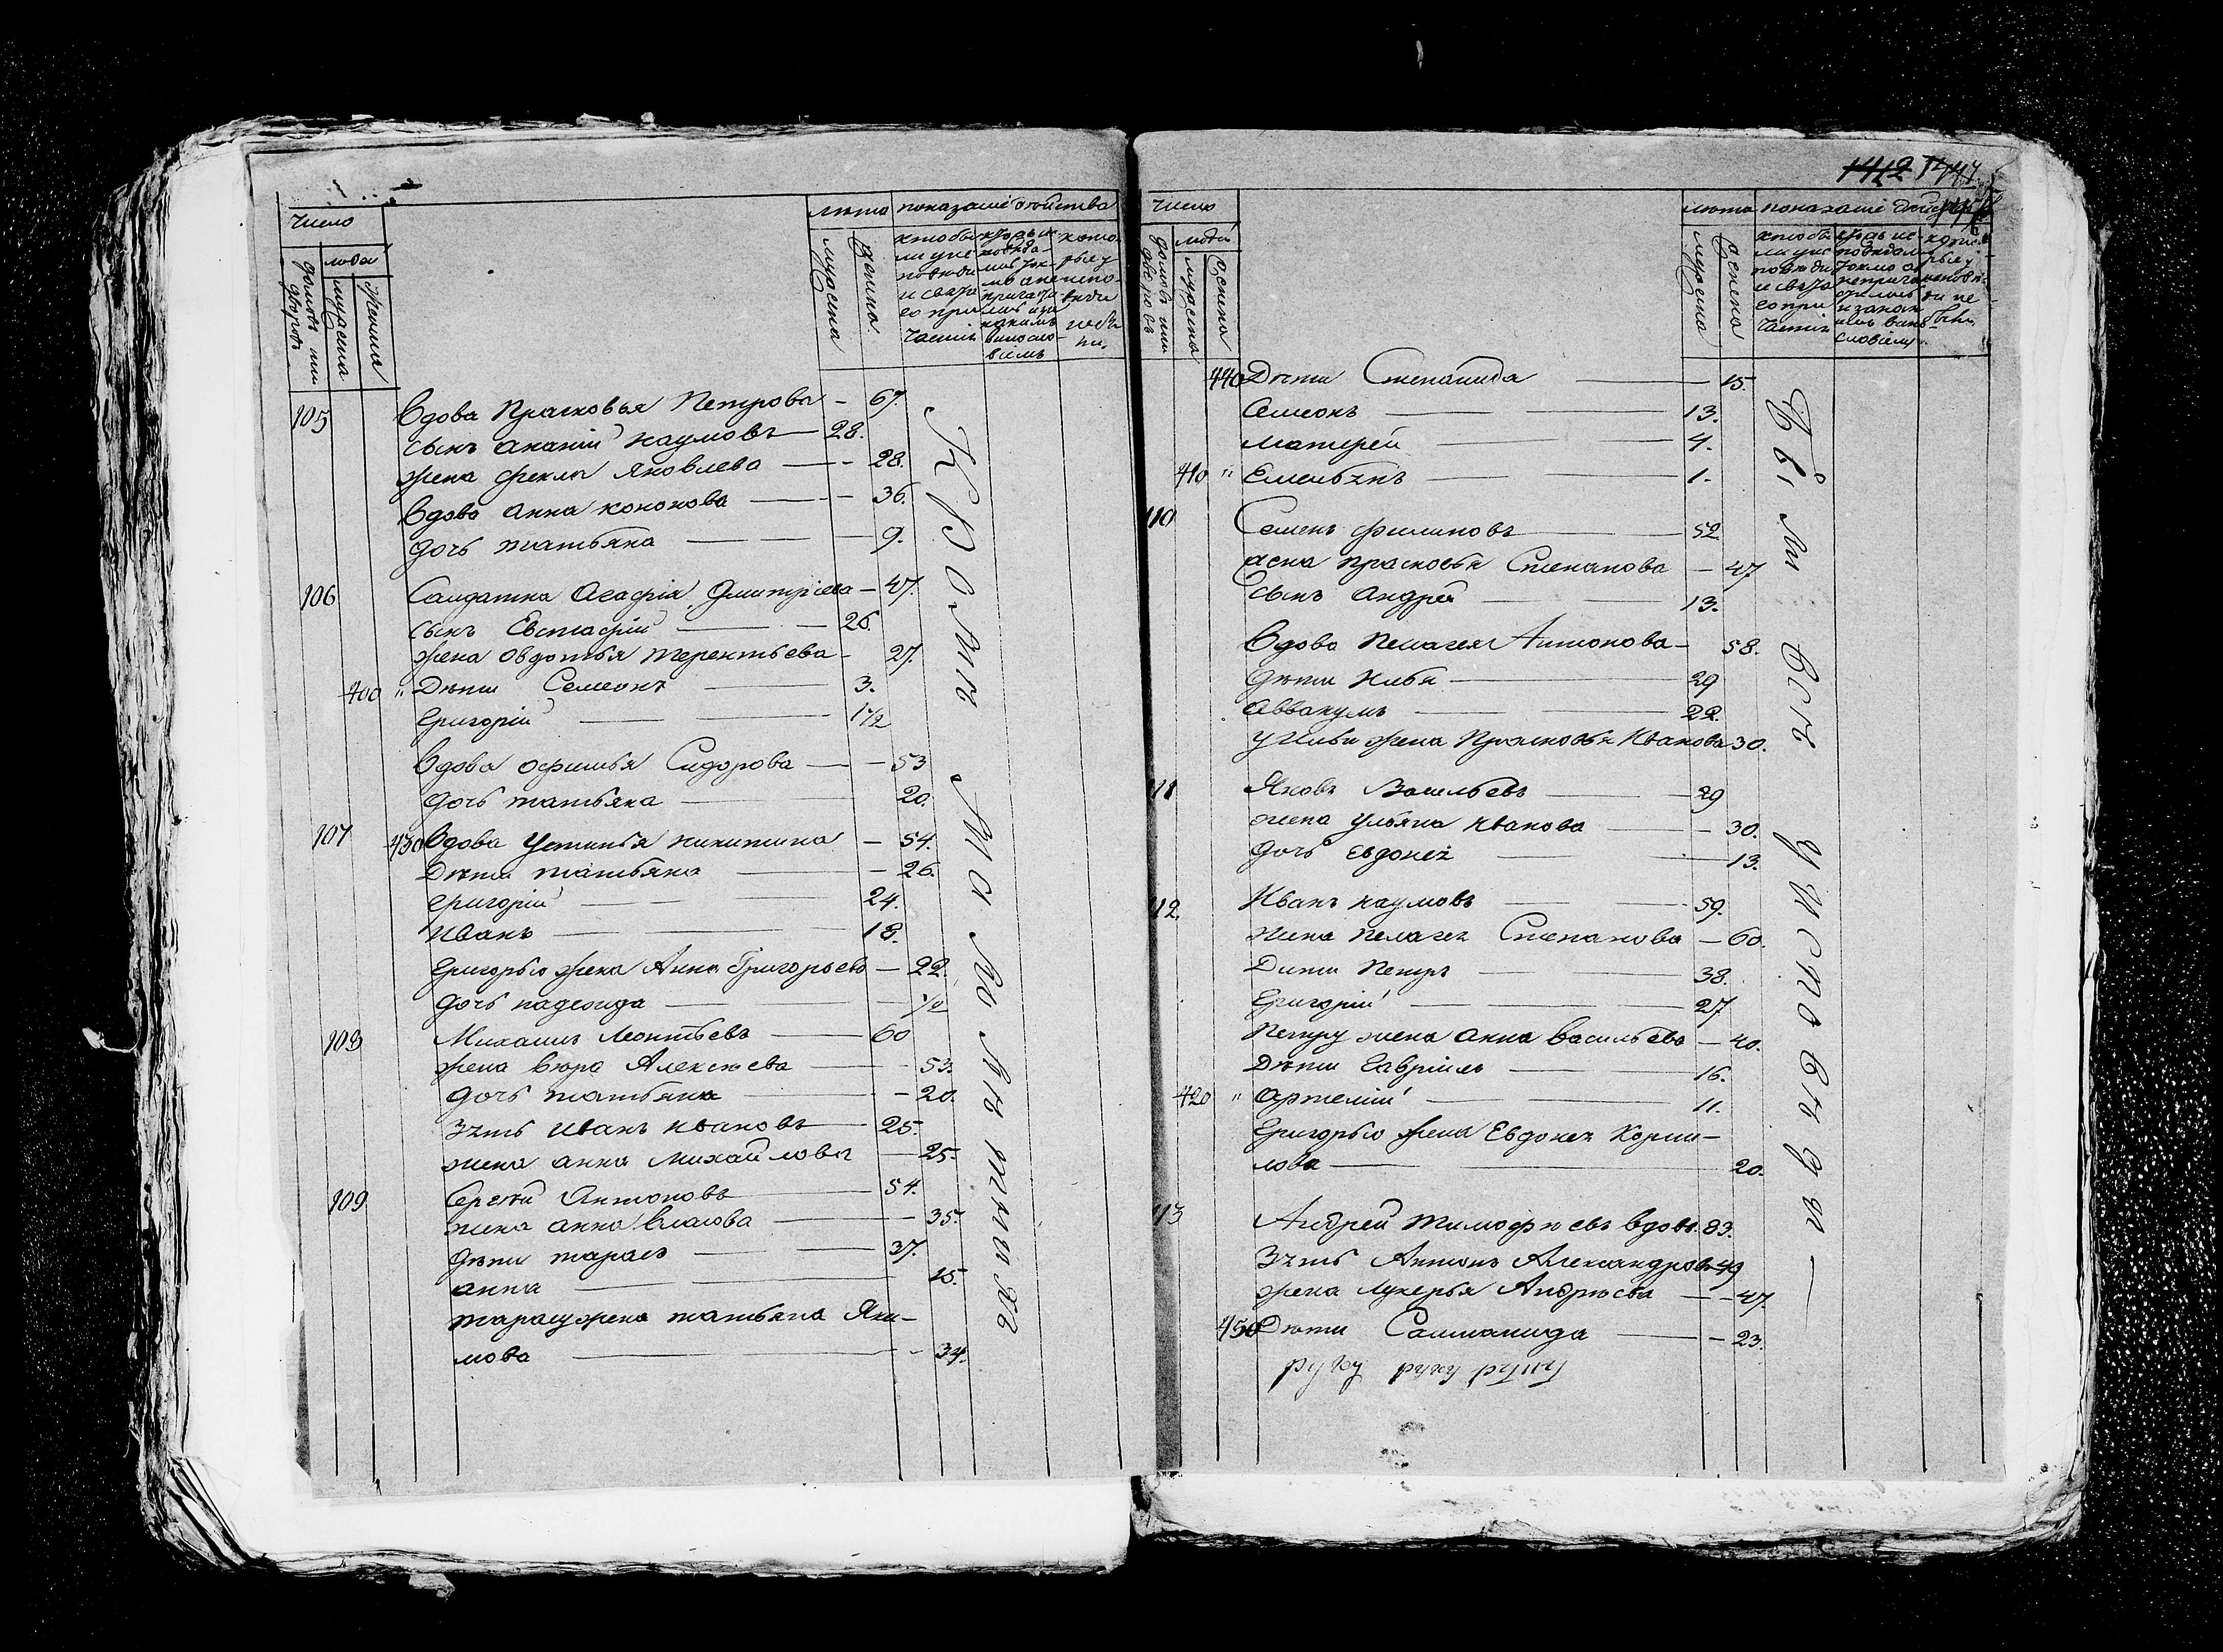 число
люди
домовъ или дворовъ
мужеска
женска
лѣта
мужеска
женска
показаніе дѣйства
кто бы
ли у ис
повѣди
и свята
го при
частія
кто ж ис
повѣда
лись ток
мо а не
причаща
лись и за
какимъ
винослов
віемъ
кото
рые у
испо
вѣди
не бы
ли
105 Вдова Прасковья Петрова — 67.
сынъ Ананій Наумовъ — 28.
жена Фекла Яковлева — 28.
Вдова Анна Кононова — 36.
дочь Татьяна — 9.
106 Салдатка Агафія Дмитріева — 47.
сынъ Евстафій — 26.
жена Овдотья Терентьева — 27.
400 " Дѣти Семеонъ — 3.
Григорій — 1 1/2
Вдова Офимья Сидорова — 53
дочь Татьяна — 20.
107 430 Вдова Устинья Никитина — 54.
Дѣти Татьяна — 26.
Григорій — 24.
Иванъ — 18.
Григорью жена Анна Григорьева — 22.
дочь Надежда — 1/2
108 Михаилъ Леонтьевъ — 60
жена Алексѣева — 53.
дочь Татьяна — 20.
Зять Иванъ Ивановъ — 25.
жена Анна Михайлова — 25.
109 Сергѣй Антоновъ — 54.
жена Анна Власова — 35.
Дѣти Тарасъ — 37.
Анна — 15.
Тарасу жена Татьяна Яки-
мова — 34.
Кромѣ малолѣтныхъ
1412
число
люди
домовъ или дворовъ
мужеска
женска
лѣта
мужеска
женска
показаніе
440 Дѣти Степанида — 15.
Семеонъ — 13.
Матфей — 4.
410 " Емельянъ — 1.
110 Семенъ Филиповъ — 52
жена Прасковья Степанова — 47
Сынъ Андрей — 13.
Вдова Пелагея Антонова — 58.
Дѣти Илья — 29
Аввакумъ — 22.
у Ильи жена Прасковья Иванова 30.
111 Яковъ Васильевъ — 29
жена Ульяна Иванова — 30.
дочь Евдокея — 13.
112 Иванъ Наумовъ — 59.
жена Пелагея Степанова — 60.
Дѣти Петръ — 38.
Григорій — 27
Петру жена Анна Васильева — 40.
Дѣти Гавріилъ — 16.
420 " Артемій — 11.
Григорью жена Евдокея Корни-
лова — 20.
113 Андрей Тимофѣевъ вдовъ 83.
Зять Антонъ Александровъ 49
жена Лукерья Андрѣева — 47.
450 Дѣти Саламанида — 23.
были всѣ у исповѣди —